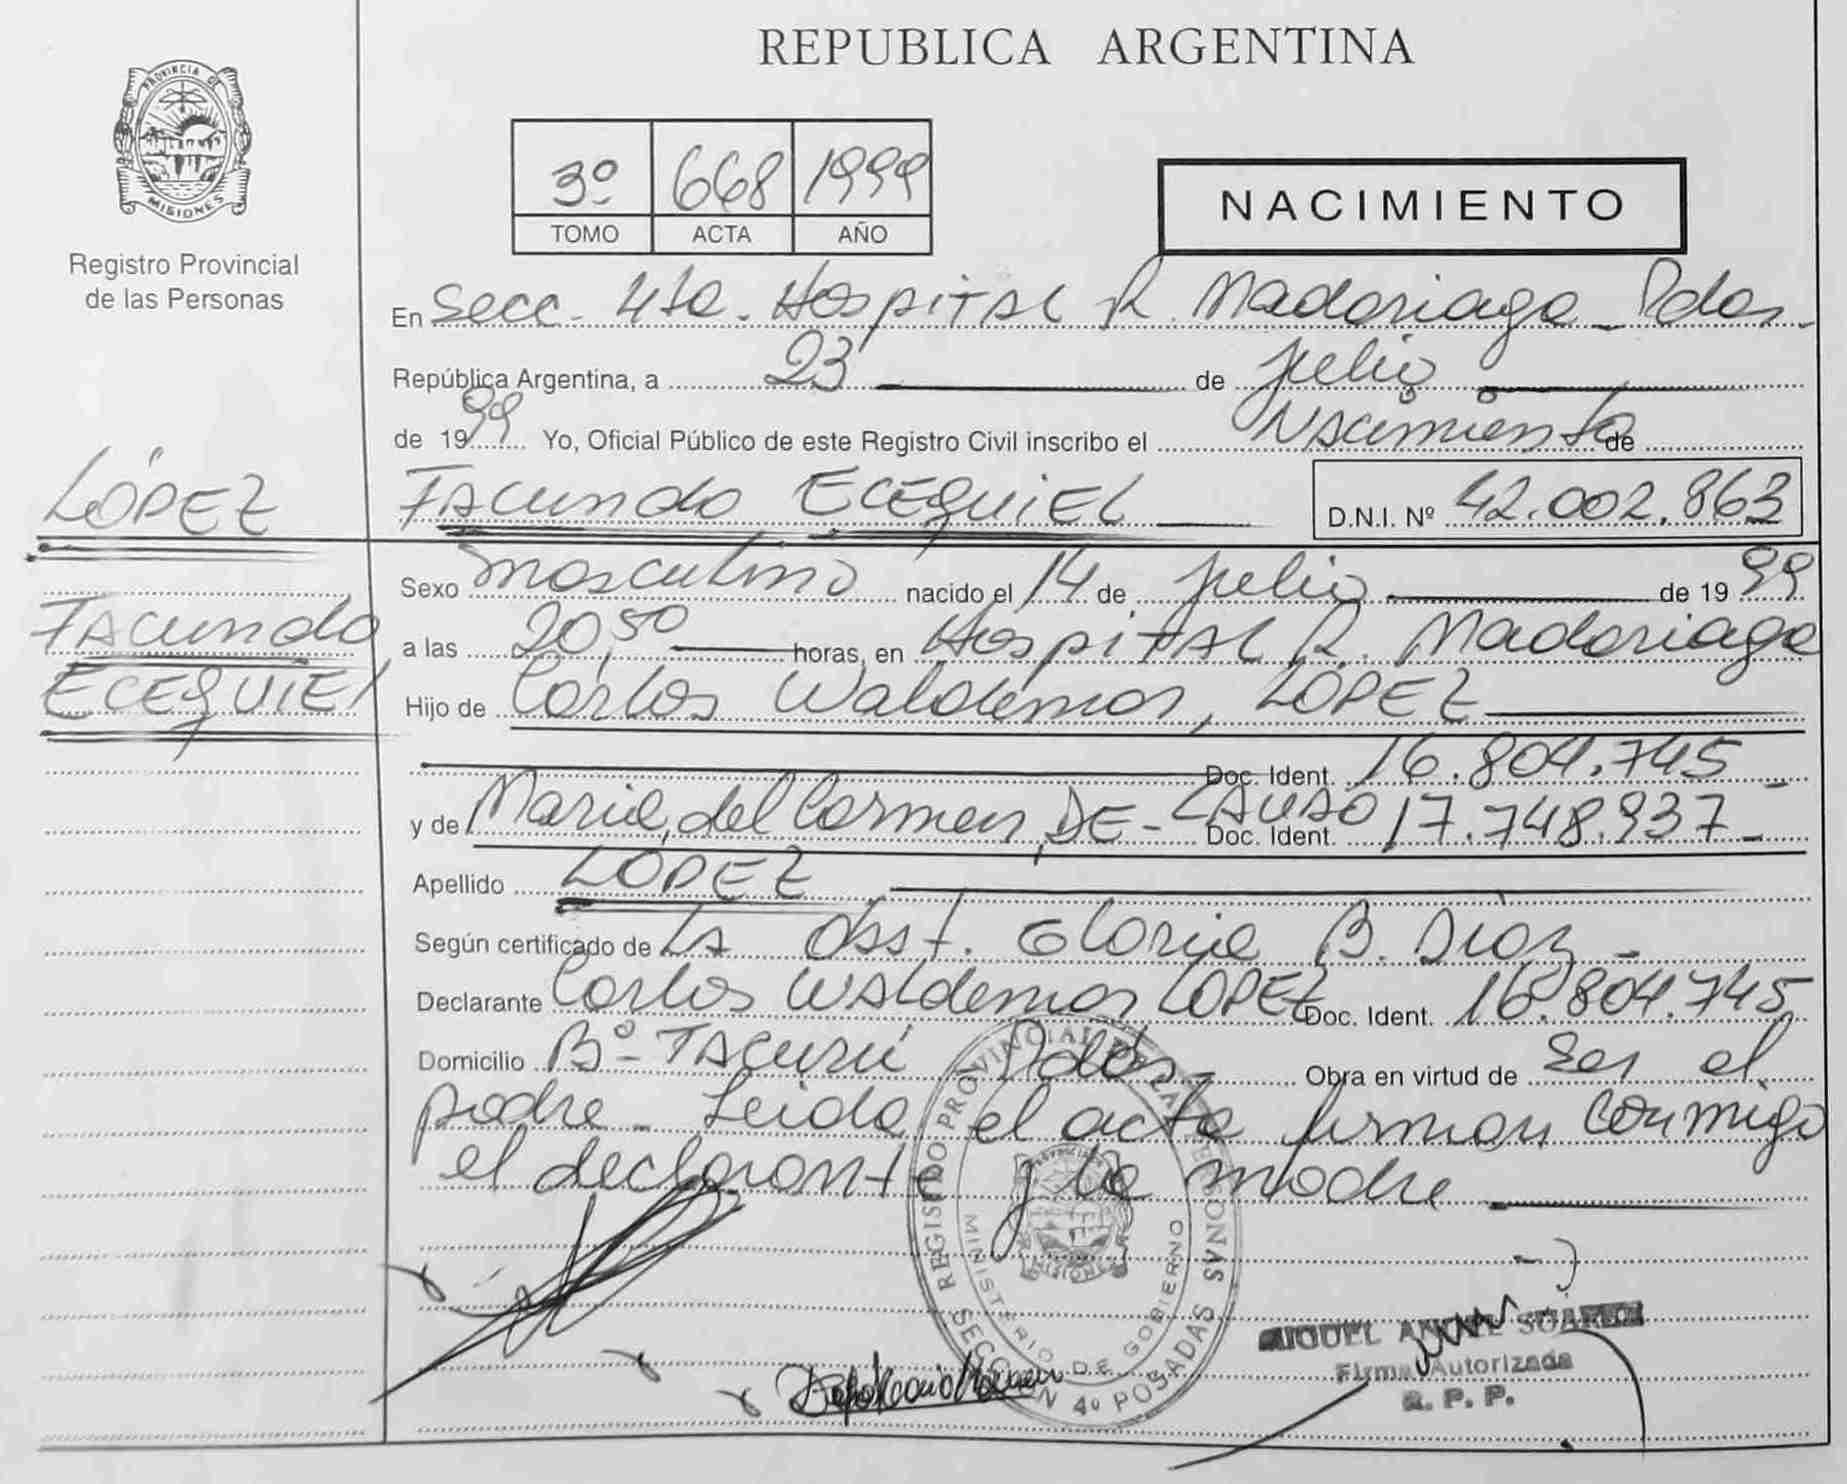 REPUBLICA ARGENTINA
PROVINCIA DE
MISIONES
Registro Provincial
de las Personas
3º 668 1999
TOMO ACTA AÑO
NACIMIENTO
En Secc. 4ta. Hospital R. Madariaga - Pdas.
República Argentina, a 23 de julio
de 1999 Yo, Oficial Público de este Registro Civil inscribo el Nacimiento de
LÓPEZ
Facundo ECEQUIEL D.N.I. Nº 42.002.863
Facundo
ECEQUIEL
Sexo masculino nacido el 14 de julio de 1999
a las 20,50 horas, en Hospital R. Madariaga
Hijo de Carlos Waldemar, LÓPEZ
Doc. Ident. 16.804.745
y de María del Carmen, DE- Doc. Ident. 17.748.937-
Apellido LÓPEZ
Según certificado de La Obst. Gloria B. Díaz -
Declarante Carlos Waldemar LÓPEZ Doc. Ident. 16.804.745
Domicilio Bº- Tacurú - Pdas- Obra en virtud de ser el
padre - Leida el acta firman conmigo
el declarante y la madre
REGISTRO PROVINCIAL DE LAS PERSONAS
MINISTERIO DE GOBIERNO
SECCION 4º POSADAS
MISIONES
MIGUEL ANGEL SUAREZ
Firma Autorizada
R. P. P.